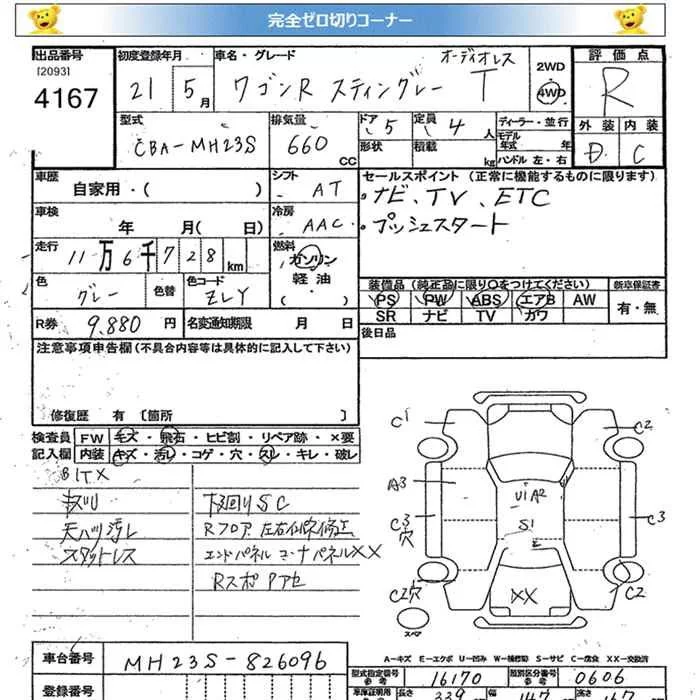 完全ゼロ切りコーナー
出品番号
[2093]
4167
初度登録年月
21 5月
車名・グレード
オーディオレス
ワゴンR スティングレー T
2WD
4WD
評価点
R
外装 内装
D C
型式
CBA-MH23S
排気量
660 cc
ドア 5
形状
定員 4人
積載 kg
ディーラー・並行
モデル年式 年
ハンドル 左・右
車歴
自家用・( )
シフト
AT
セールスポイント (正常に機能するものに限ります)
・ナビ、TV、ETC
・プッシュスタート
車検
年 月( 日)
冷房
AAC
走行
11万6千728km
燃料
ガソリン
軽油
( )
色
グレー
色替
色コード
ZLY
装備品 (純正品に限り○をつけてください)
新車保証書
PS PW ABS エアB AW
SR ナビ TV カワ
有・無
R券
9.880 円
名変通知期限 月 日
後日品
注意事項申告欄(不具合内容等は具体的に記入して下さい)
修復歴 有 [箇所 ]
検査員
記入欄
FW キズ・飛石・ヒビ割・リペア跡・×要
内装 キズ・汚レ・コゲ・穴・スレ・キレ・破レ
BITX
キズリ
下回りSC
天ハリ汚レ
Rフロア 左右インナー修正
スタットレス
エンドパネル コーナーパネルXX
Rスポ Pアセ
C1
C2
A3
U1 A2
C3
穴
S1
C3
C2穴
XX
C2
スペア
A-キズ E-エクボ U-凹み W-補修跡 S-サビ C-腐食 XX-交換済
車台番号
MH23S-826096
登録番号
型式指定番号
参考
16170
類別区分番号
参考
0606
車庫証明用
長さ 339
幅 147
高さ